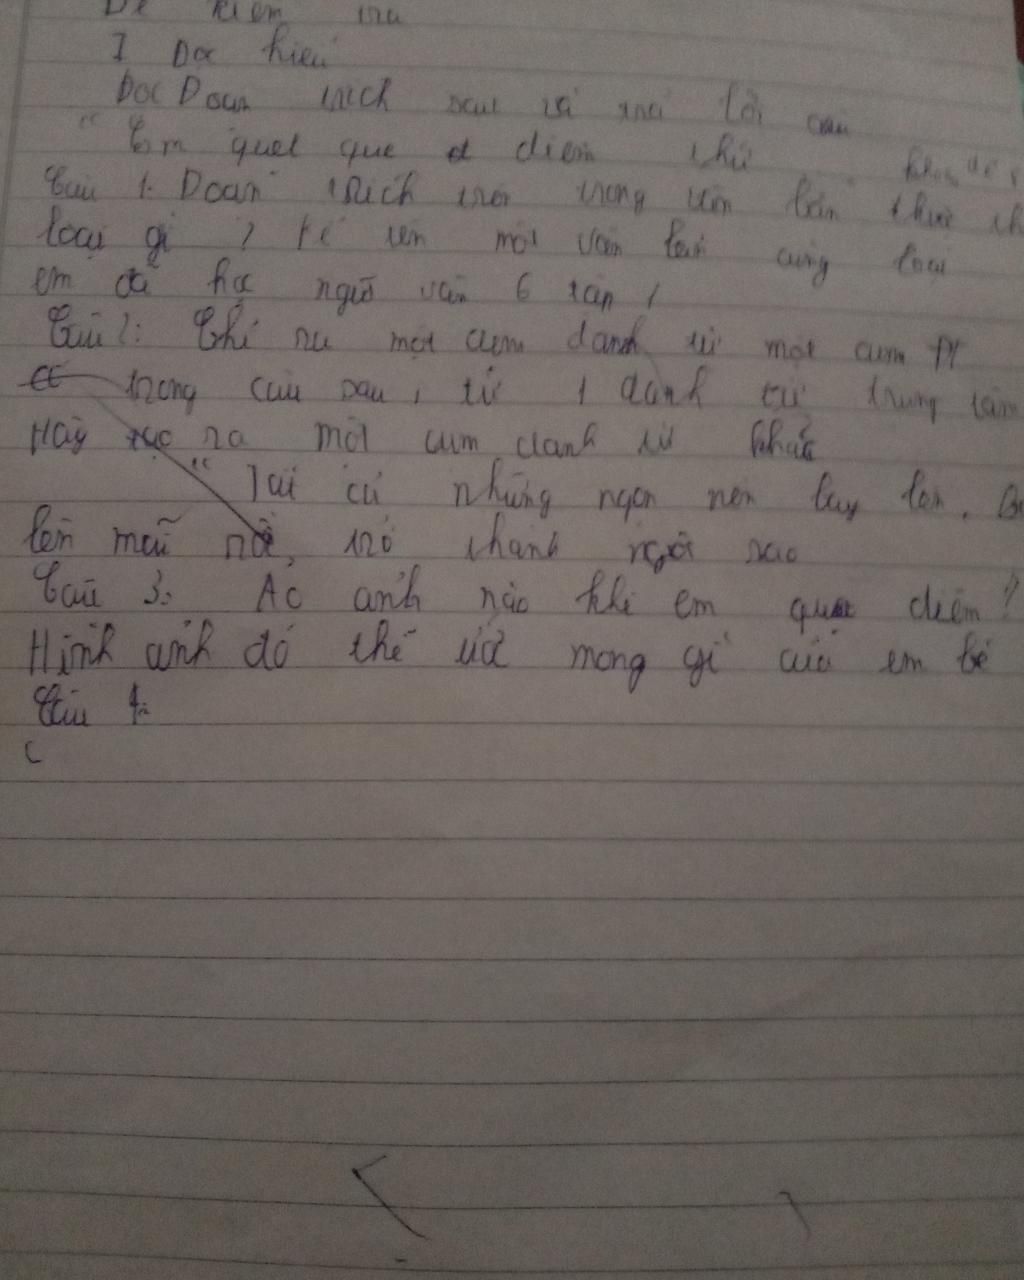 I Đọc hiểu
Đọc Đoạn trích sau và trả lời câu
"Em quẹt que diêm thứ
Câu 1. Đoạn trích trên trong văn bản thuộc
loại gì ? Kể tên một văn bản cùng loại
em đã học ngữ văn 6 tập 1
Câu 2: Chỉ ra một cụm danh từ một cụm
trong câu sau, từ 1 danh từ trung tâm
Hãy tạo ra một cụm danh từ khác
" Tất cả những ngọn nến bay lên,
lên mãi rồi, trở thành ngôi sao
Câu 3: anh nào khi em quẹt diêm?
Hình ảnh đó thể ước mong gì của em bé
Câu 4: